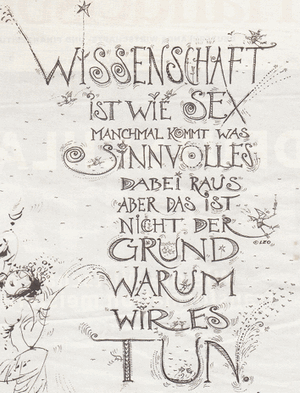 WISSENSCHAFT
IST WIE SEX
MANCHMAL KOMMT WAS
SINNVOLLES
DABEI RAUS
ABER DAS IST
NICHT DER
GRUND
© LEO
WARUM
WIR ES
TUN.